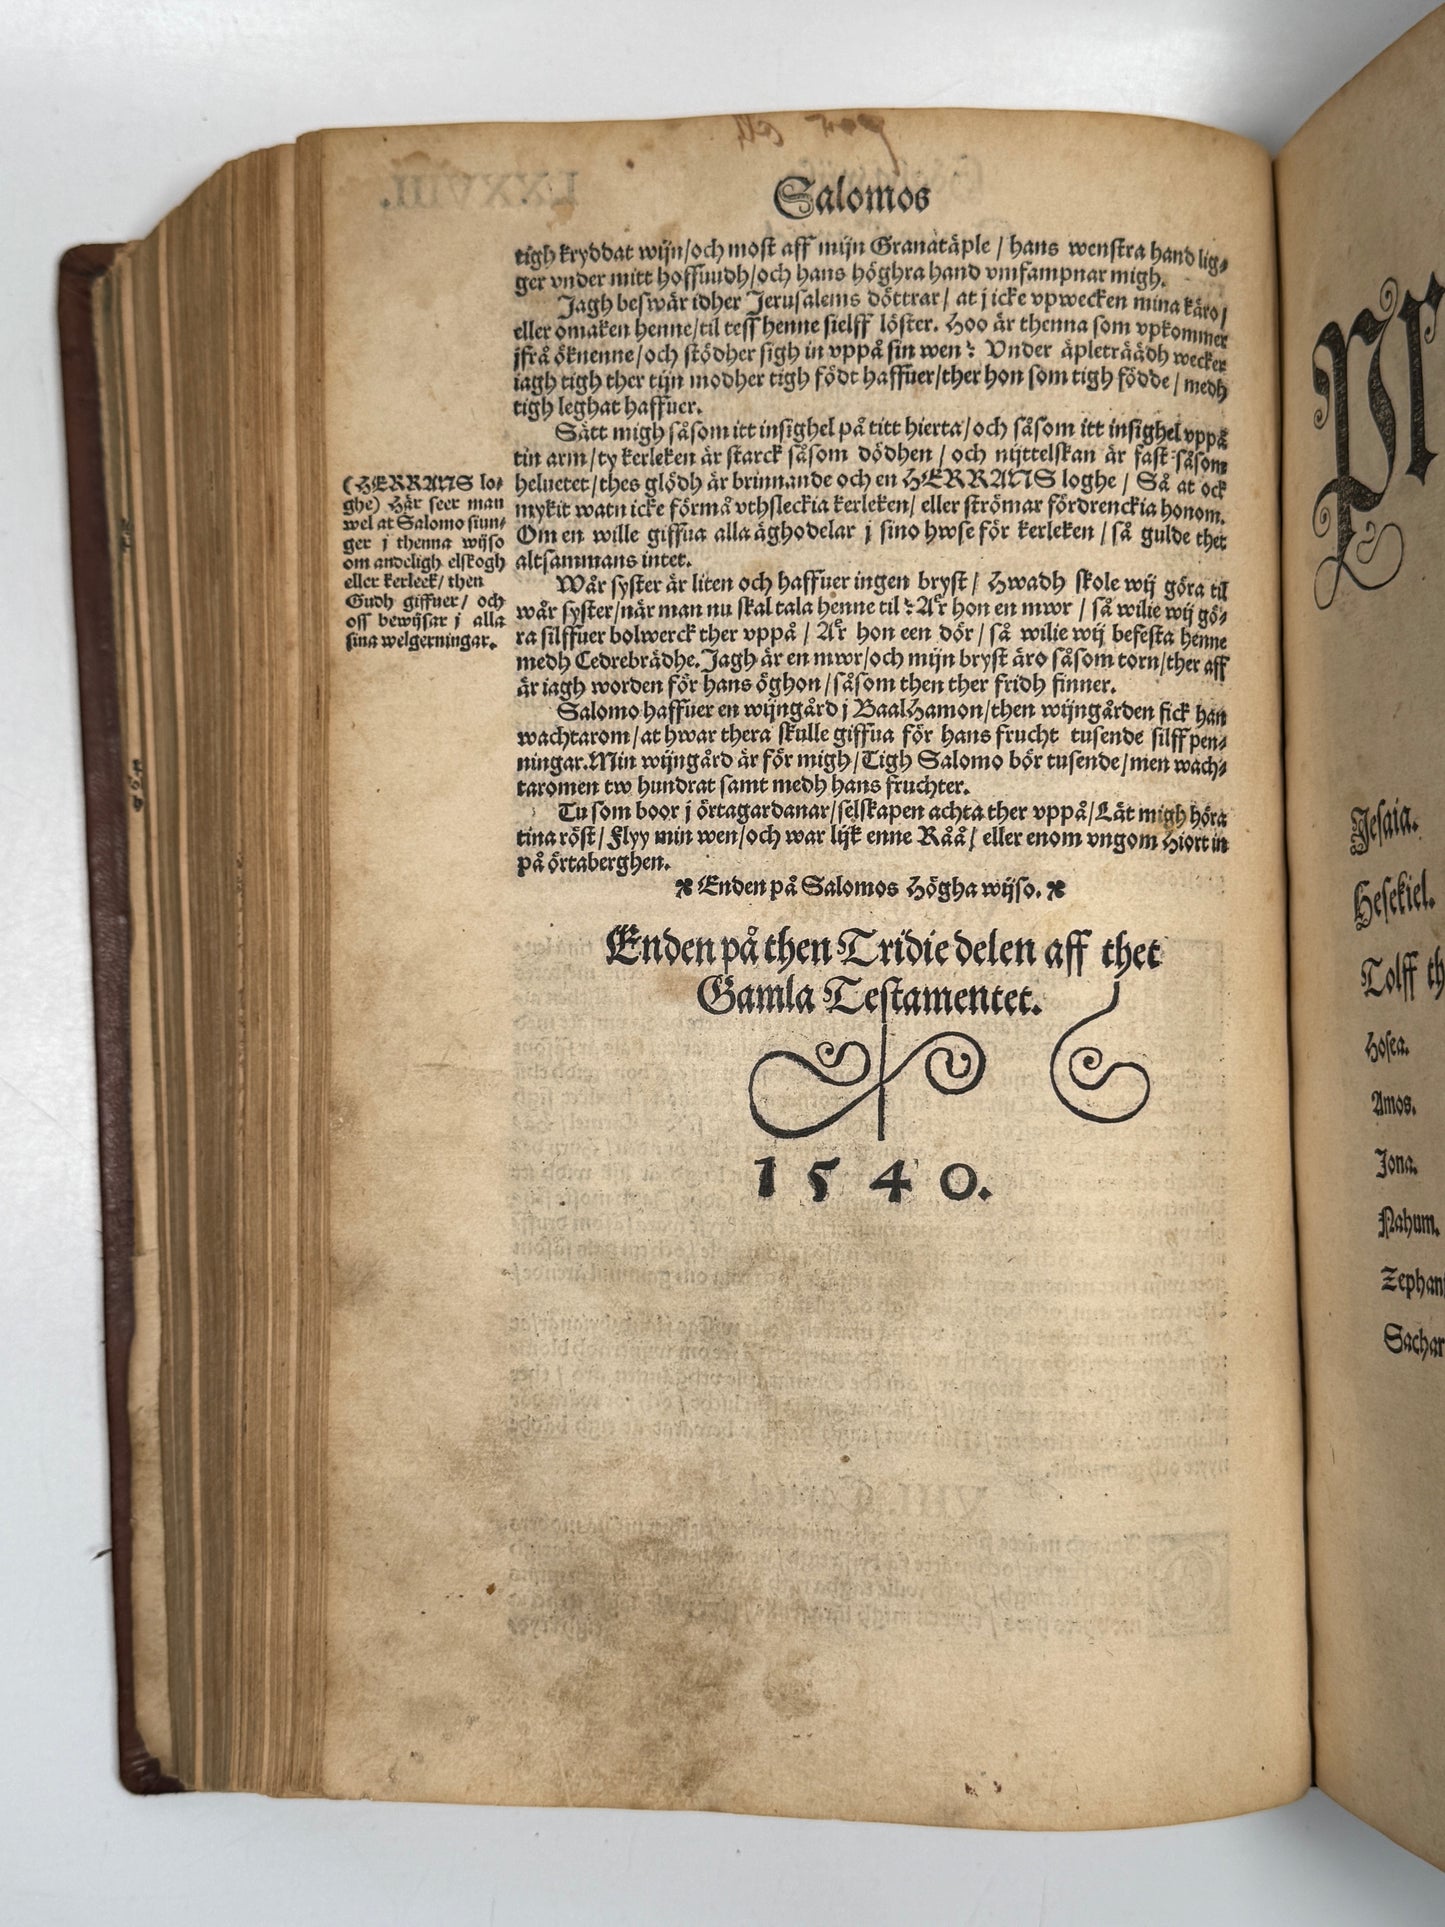 Salomos
tigh kryddat wijn/och most aff mijn Granatäple / hans wenstra hand lig⸗
ger vnder mitt hoffuudh/och hans höghra hand vmfampnar migh.
Jagh beswär idher Jerusalems döttrar/ at j icke vpwecken mina käro/
eller omaken henne/til tess henne sielff löster. Hoo är thenna som vpkommer
jfrå öknenne/och stödher sigh in vppå sin wen? Vnder äpleträädh wecker
iagh tigh ther tijn modher tigh födt haffuer/ther hon som tigh födde / medh
tigh leghat haffuer.
Sätt migh såsom itt insighel på titt hierta/och såsom itt insighel vppå
tin arm/ty kerleken är starck såsom dödhen / och nijttelskan är fast såsom
heluetet/thes glödh är brinnande och en HERRANS loghe / Så at ock
mykit watn icke förmå vthsleckia kerleken/ eller strömar fördrenckia honom.
Om en wille giffua alla äghodelar j sino hwse för kerleken / så gulde thet
altsammans intet.
Wår syster är liten och haffuer ingen bryst / Hwadh skole wij göra til
wår syster/när man nu skal tala henne til? Är hon en mwr / så wilie wij gö⸗
ra silffuer bolwerck ther vppå / Är hon een dör/ så wilie wij befesta henne
medh Cedrebrädhe. Jagh är en mwr/och mijn bryst äro såsom torn/ther aff
är iagh worden för hans öghon/såsom then ther fridh finner.
Salomo haffuer en wijngård j BaalHamon/then wijngården fick han
wachtarom/at hwar thera skulle giffua för hans frucht tusende silffpen⸗
ningar. Min wijngård är för migh/Tigh Salomo bör tusende/men wach⸗
taromen tw hundrat samt medh hans fruchter.
Tu som boor j örtagardanar/selskapen achta ther vppå/Låt migh höra
tina röst/ Flyy min wen/och war lijk enne Råå/ eller enom vngom Hiort in
på örtaberghen.
Enden på Salomos Högha wijso.
(HERRANS lo⸗
ghe) Här seer man
wel at Salomo siun⸗
ger j thenna wijso
om andeligh elskogh
eller kerleek/ then
Gudh giffuer/ och
oss bewijsar j alla
sina welgerningar.
Enden på then Tridie delen aff thet
Gamla Testamentet.
1540.
Jesaia.
Hesekiel.
Tolff th
Hosea.
Amos.
Jona.
Nahum.
Zephan
Sachar